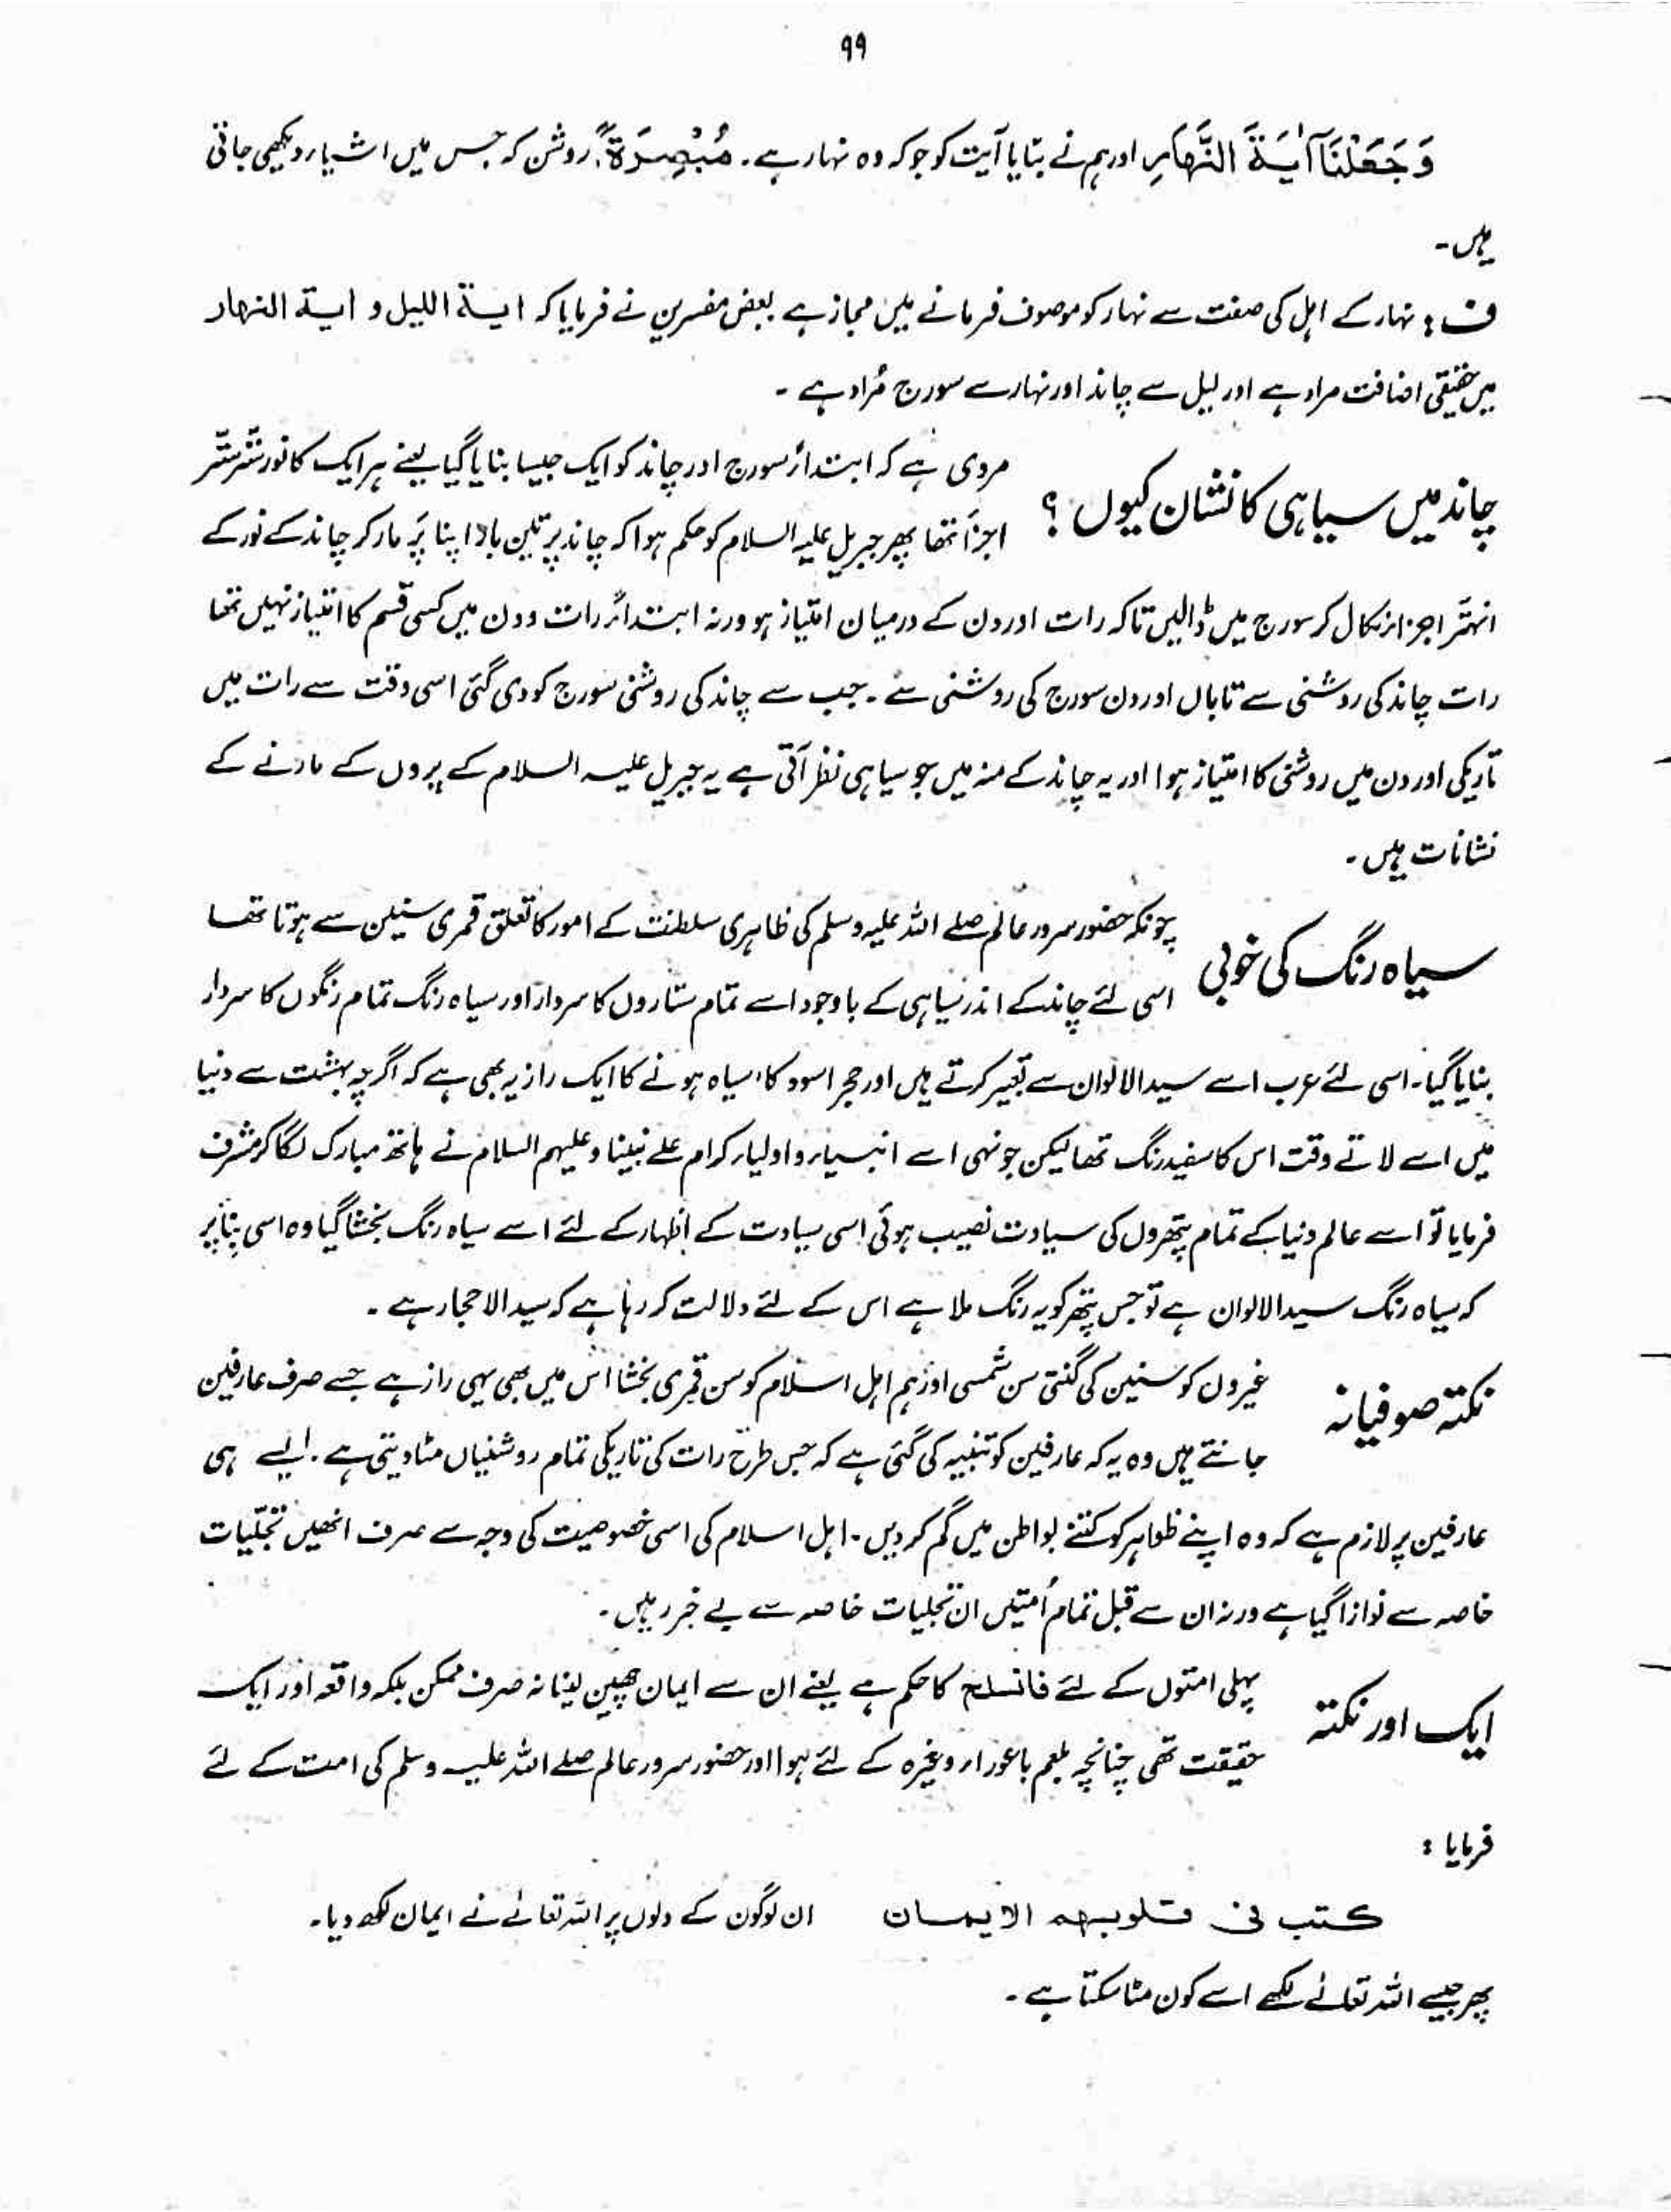 ۹۹
وَجَعَلْنَآ اٰيَةَ النَّهَارِ اور ہم نے بنایا آیت کو جو کہ وہ نہار ہے ۔ مُبْصِرَةً، روشن کہ جس میں اشیاء دیکھی جاتی
ہیں ۔
ف : نہار کے اہل کی صفت سے نہار کو موصوف فرمانے میں مجاز ہے بعض مفسرین نے فرمایا کہ ایۃ اللیل و ایۃ النھار
میں حقیقی اضافت مراد ہے اور لیل سے چاند اور نہار سے سورج مُراد ہے ۔
چاند میں سیاہی کا نشان کیوں ؟
مروی ہے کہ ابتداءً سورج اور چاند کو ایک جیسا بنایا گیا یعنے ہر ایک کا نور ستّر ستّر
اجزاً تھا پھر جبریل علیہ السلام کو حکم ہوا کہ چاند پر تین بار اپنا پَر مار کر چاند کے نور کے
انہتّر اجزاء نکال کر سورج میں ڈالیں تاکہ رات اور دن کے درمیان امتیاز ہو ورنہ ابتداءً رات و دن میں کسی قسم کا امتیاز نہیں تھا
رات چاند کی روشنی سے تاباں اور دن سورج کی روشنی سے ۔ جب سے چاند کی روشنی سورج کو دی گئی اسی وقت سے رات میں
تاریکی اور دن میں روشنی کا امتیاز ہوا اور یہ چاند کے منہ میں جو سیاہی نظر آتی ہے یہ جبریل علیہ السلام کے پروں کے مارنے کے
نشانات ہیں ۔
سیاہ رنگ کی خوبی
چونکہ حضور سرور عالم صلے اللہ علیہ وسلم کی ظاہری سلطنت کے امور کا تعلق قمری سنین سے ہوتا تھا
اسی لئے چاند کے اندر سیاہی کے باوجود اسے تمام ستاروں کا سردار اور سیاہ رنگ تمام رنگوں کا سردار
بنایا گیا ۔ اسی لئے عرب اسے سیدالالوان سے تعبیر کرتے ہیں اور حجر اسود کا سیاہ ہونے کا ایک راز یہ بھی ہے کہ اگرچہ بہشت سے دنیا
میں اسے لاتے وقت اس کا سفید رنگ تھا لیکن جونہی اسے انبیاء و اولیاء کرام علے نبینا وعلیہم السلام نے ہاتھ مبارک لگا کر مشرف
فرمایا تو اسے عالم دنیا کے تمام پتھروں کی سیادت نصیب ہوئی اسی سیادت کے اظہار کے لئے اسے سیاہ رنگ بخشا گیا وہ اسی بنا پر
کہ سیاہ رنگ سیدالالوان ہے تو جس پتھر کو یہ رنگ ملا ہے اس کے لئے دلالت کر رہا ہے کہ سیدالاحجار ہے ۔
نکتہ صوفیانہ
غیروں کو سنین کی گنتی سن شمسی اور ہم اہل اسلام کو سن قمری بخشا اس میں بھی یہی راز ہے جسے صرف عارفین
جانتے ہیں وہ یہ کہ عارفین کو تنبیہ کی گئی ہے کہ جس طرح رات کی تاریکی تمام روشنیاں مٹا دیتی ہے ۔ ایسے ہی
عارفین پر لازم ہے کہ وہ اپنے ظواہر کو کتنے بواطن میں گم کر دیں ۔ اہل اسلام کی اسی خصوصیت کی وجہ سے صرف انھیں تجلّیات
خاصہ سے نوازا گیا ہے ورنہ ان سے قبل تمام اُمتیں ان تجلیات خاصہ سے بے خبر رہیں ۔
ایک اور نکتہ
پہلی امتوں کے لئے فانسلخ کا حکم ہے یعنے ان سے ایمان چھین لینا نہ صرف ممکن بلکہ واقعہ اور ایک
حقیقت تھی چنانچہ بلعم باعوراء وغیرہ کے لئے ہوا اور حضور سرور عالم صلے اللہ علیہ وسلم کی امت کے لئے
فرمایا :
کتب فی قلوبہم الایمان ان لوگوں کے دلوں پر اللہ تعالےٰ نے ایمان لکھ دیا ۔
پھر جسے اللہ تعالےٰ لکھے اسے کون مٹا سکتا ہے ۔